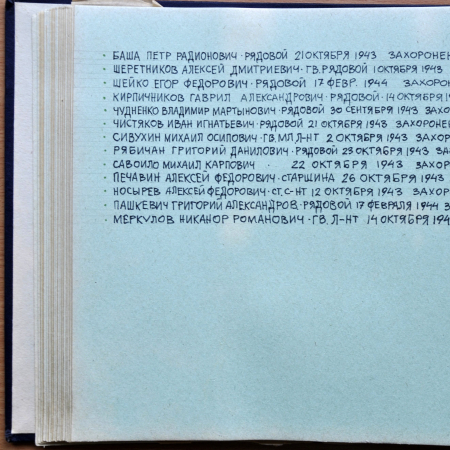 · БАША ПЕТР РАДИОНОВИЧ · РЯДОВОЙ 21 ОКТЯБРЯ 1943 ЗАХОРОНЕН
· ШЕРЕТНИКОВ АЛЕКСЕЙ ДМИТРИЕВИЧ · ГВ. РЯДОВОЙ 1 ОКТЯБРЯ 1943
· ШЕЙКО ЕГОР ФЕДОРОВИЧ · РЯДОВОЙ 17 ФЕВР. 1944 ЗАХОРОН
· КИРПИЧНИКОВ ГАВРИЛ АЛЕКСАНДРОВИЧ · РЯДОВОЙ · 14 ОКТЯБРЯ 19
· ЧУДНЕНКО ВЛАДИМИР МАРТЫНОВИЧ · РЯДОВОЙ 30 СЕНТЯБРЯ 1943 ЗАХО
· ЧИСТЯКОВ ИВАН ИГНАТЬЕВИЧ · РЯДОВОЙ 21 ОКТЯБРЯ 1943 ЗАХОРОНЕ
· СИВУХИН МИХАИЛ ОСИПОВИЧ · ГВ. МЛ Л-НТ 2 ОКТЯБРЯ 1943 ЗАХОР
· РЯБИЧАН ГРИГОРИЙ ДАНИЛОВИЧ · РЯДОВОЙ 23 ОКТЯБРЯ 1943 ЗАХОР
· САВОИЛО МИХАИЛ КАРПОВИЧ · 22 ОКТЯБРЯ 1943 ЗАХОР
· ПЕЧАВИН АЛЕКСЕЙ ФЕДОРОВИЧ · СТАРШИНА 26 ОКТЯБРЯ 1943
· НОСЫРЕВ АЛЕКСЕЙ ФЕДОРОВИЧ · СТ. С-НТ 12 ОКТЯБРЯ 1943 ЗАХОР
· ПАШКЕВИЧ ГРИГОРИЙ АЛЕКСАНДРОВ · РЯДОВОЙ 17 ФЕВРАЛЯ 1944 З
· МЕРКУЛОВ НИКАНОР РОМАНОВИЧ · ГВ. Л-НТ 14 ОКТЯБРЯ 194